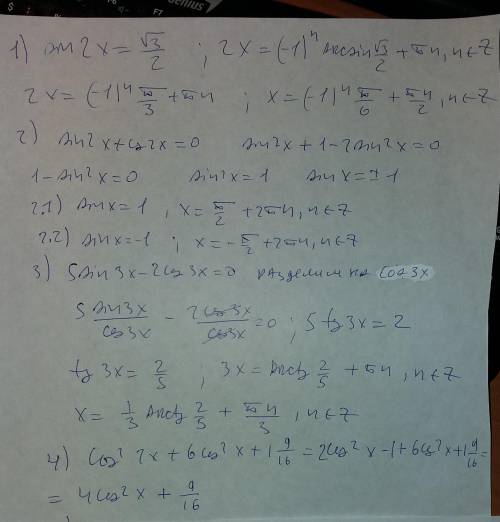 1) sin 2x = √3/2 ; 2x = (-1)ⁿ arcsin √3/2 + πn, n∈Z
2x = (-1)ⁿ π/3 + πn ; x = (-1)ⁿ π/6 + πn/2, n∈Z
2) sin²x + cos2x = 0 sin²x + 1 - 2sin²x = 0
1 - sin²x = 0 sin²x = 1 sinx = ±1
2.1) sinx = 1 , x = π/2 + 2πn, n∈Z
2.2) sinx = -1 ; x = -π/2 + 2πn, n∈Z
3) 5sin3x - 2cos3x = 0 разделим на cos3x
5 sin3x/cos3x - 2cos3x/cos3x = 0 ; 5 tg3x = 2
tg 3x = 2/5 ; 3x = arctg 2/5 + πn, n∈Z
x = 1/3 arctg 2/5 + πn/3, n∈Z
4) cos² 2x + 6cos²x + 1 9/16 = 2cos²x - 1 + 6cos²x + 1 9/16 =
= 4cos²x + 9/16